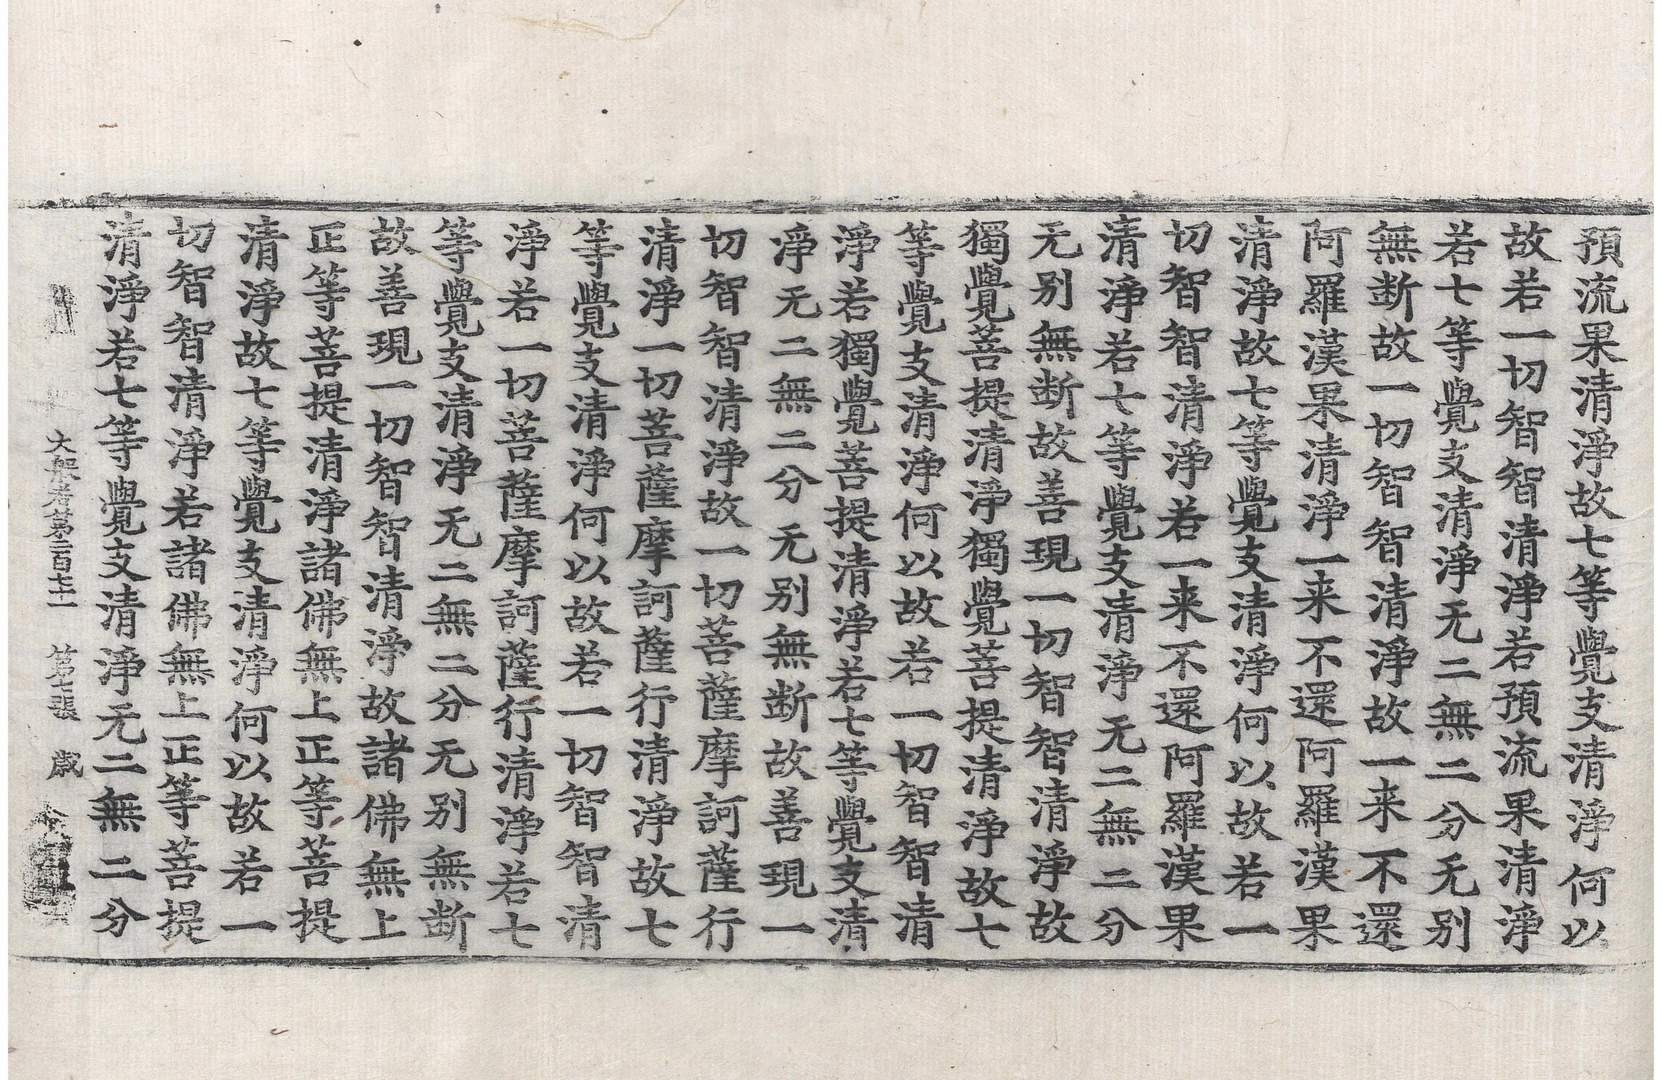 預流果清淨故七等覺支清淨何以
故若一切智智清淨若預流果清淨
若七等覺支清淨无二無二分无别
無断故一切智智清淨故一来不還
阿羅漢果清淨一来不還阿羅漢果
清淨故七等覺支清淨何以故若一
切智智清淨若一来不還阿羅漢果
清淨若七等覺支清淨无二無二分
无别無断故善現一切智智清淨故
獨覺菩提清淨獨覺菩提清淨故七
等覺支清淨何以故若一切智智清
淨若獨覺菩提清淨若七等覺支清
淨无二無二分无别無断故善現一
切智智清淨故一切菩薩摩訶薩行
清淨一切菩薩摩訶薩行清淨故七
等覺支清淨何以故若一切智智清
淨若一切菩薩摩訶薩行清淨若七
等覺支清淨无二無二分无别無断
故善現一切智智清淨故諸佛無上
正等菩提清淨諸佛無上正等菩提
清淨故七等覺支清淨何以故若一
切智智清淨若諸佛無上正等菩提
清淨若七等覺支清淨无二無二分
大般若第二百七十一 第七張 歲